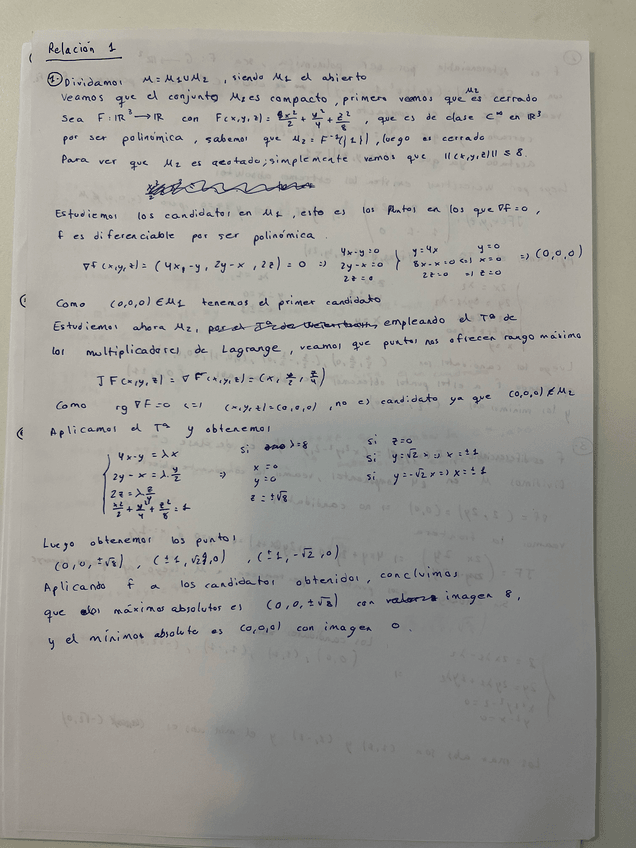 Relación 1
1. Dividamos M = M1 ∪ M2 , siendo M1 el abierto
Veamos que el conjunto M2 es compacto, primero veamos que M2 es cerrado
Sea F: ℝ³ → ℝ con F(x,y,z) = x²/2 + y²/4 + z²/8 , que es de clase C∞ en ℝ³
por ser polinómica, sabemos que M2 = F⁻¹({1}), luego es cerrado
Para ver que M2 es acotado, simplemente vemos que ||(x,y,z)|| ≤ 8.
Estudiemos los candidatos en M1, esto es los puntos en los que ∇f = 0,
f es diferenciable por ser polinómica.
∇f(x,y,z) = (4x-y, 2y-x, 2z) = 0 => 4x-y=0 2y-x=0 2z=0 } y=4x 8x-x=0 <=> x=0 2z=0 => z=0 y=0 => (0,0,0)
Como (0,0,0) ∈ M1 tenemos el primer candidato
Estudiemos ahora M2, empleando el Tª de
los multiplicadores de Lagrange, veamos que puntos nos ofrecen rango máximo
JF(x,y,z) = ∇F(x,y,z) = (x, y/2, z/4)
Como rg ∇F = 0 <=> (x,y,z) = (0,0,0), no es candidato ya que (0,0,0) ∉ M2
Aplicamos el Tª y obtenemos
4x-y = λx si λ=8 si z=0
2y-x = λ y/2 => x=0 si y=√2 x => x=±1
2z = λ z/4 y=0 si y=-√2 x => x=±1
x²/2 + y²/4 + z²/8 = 1 z=±√8
Luego obtenemos los puntos
(0,0,±√8) , (±1, √2,0) , (±1,-√2,0)
Aplicando f a los candidatos obtenidos, concluimos
que los máximos absolutos es (0,0,±√8) con imagen 8,
y el mínimos absoluto es (0,0,0) con imagen 0.